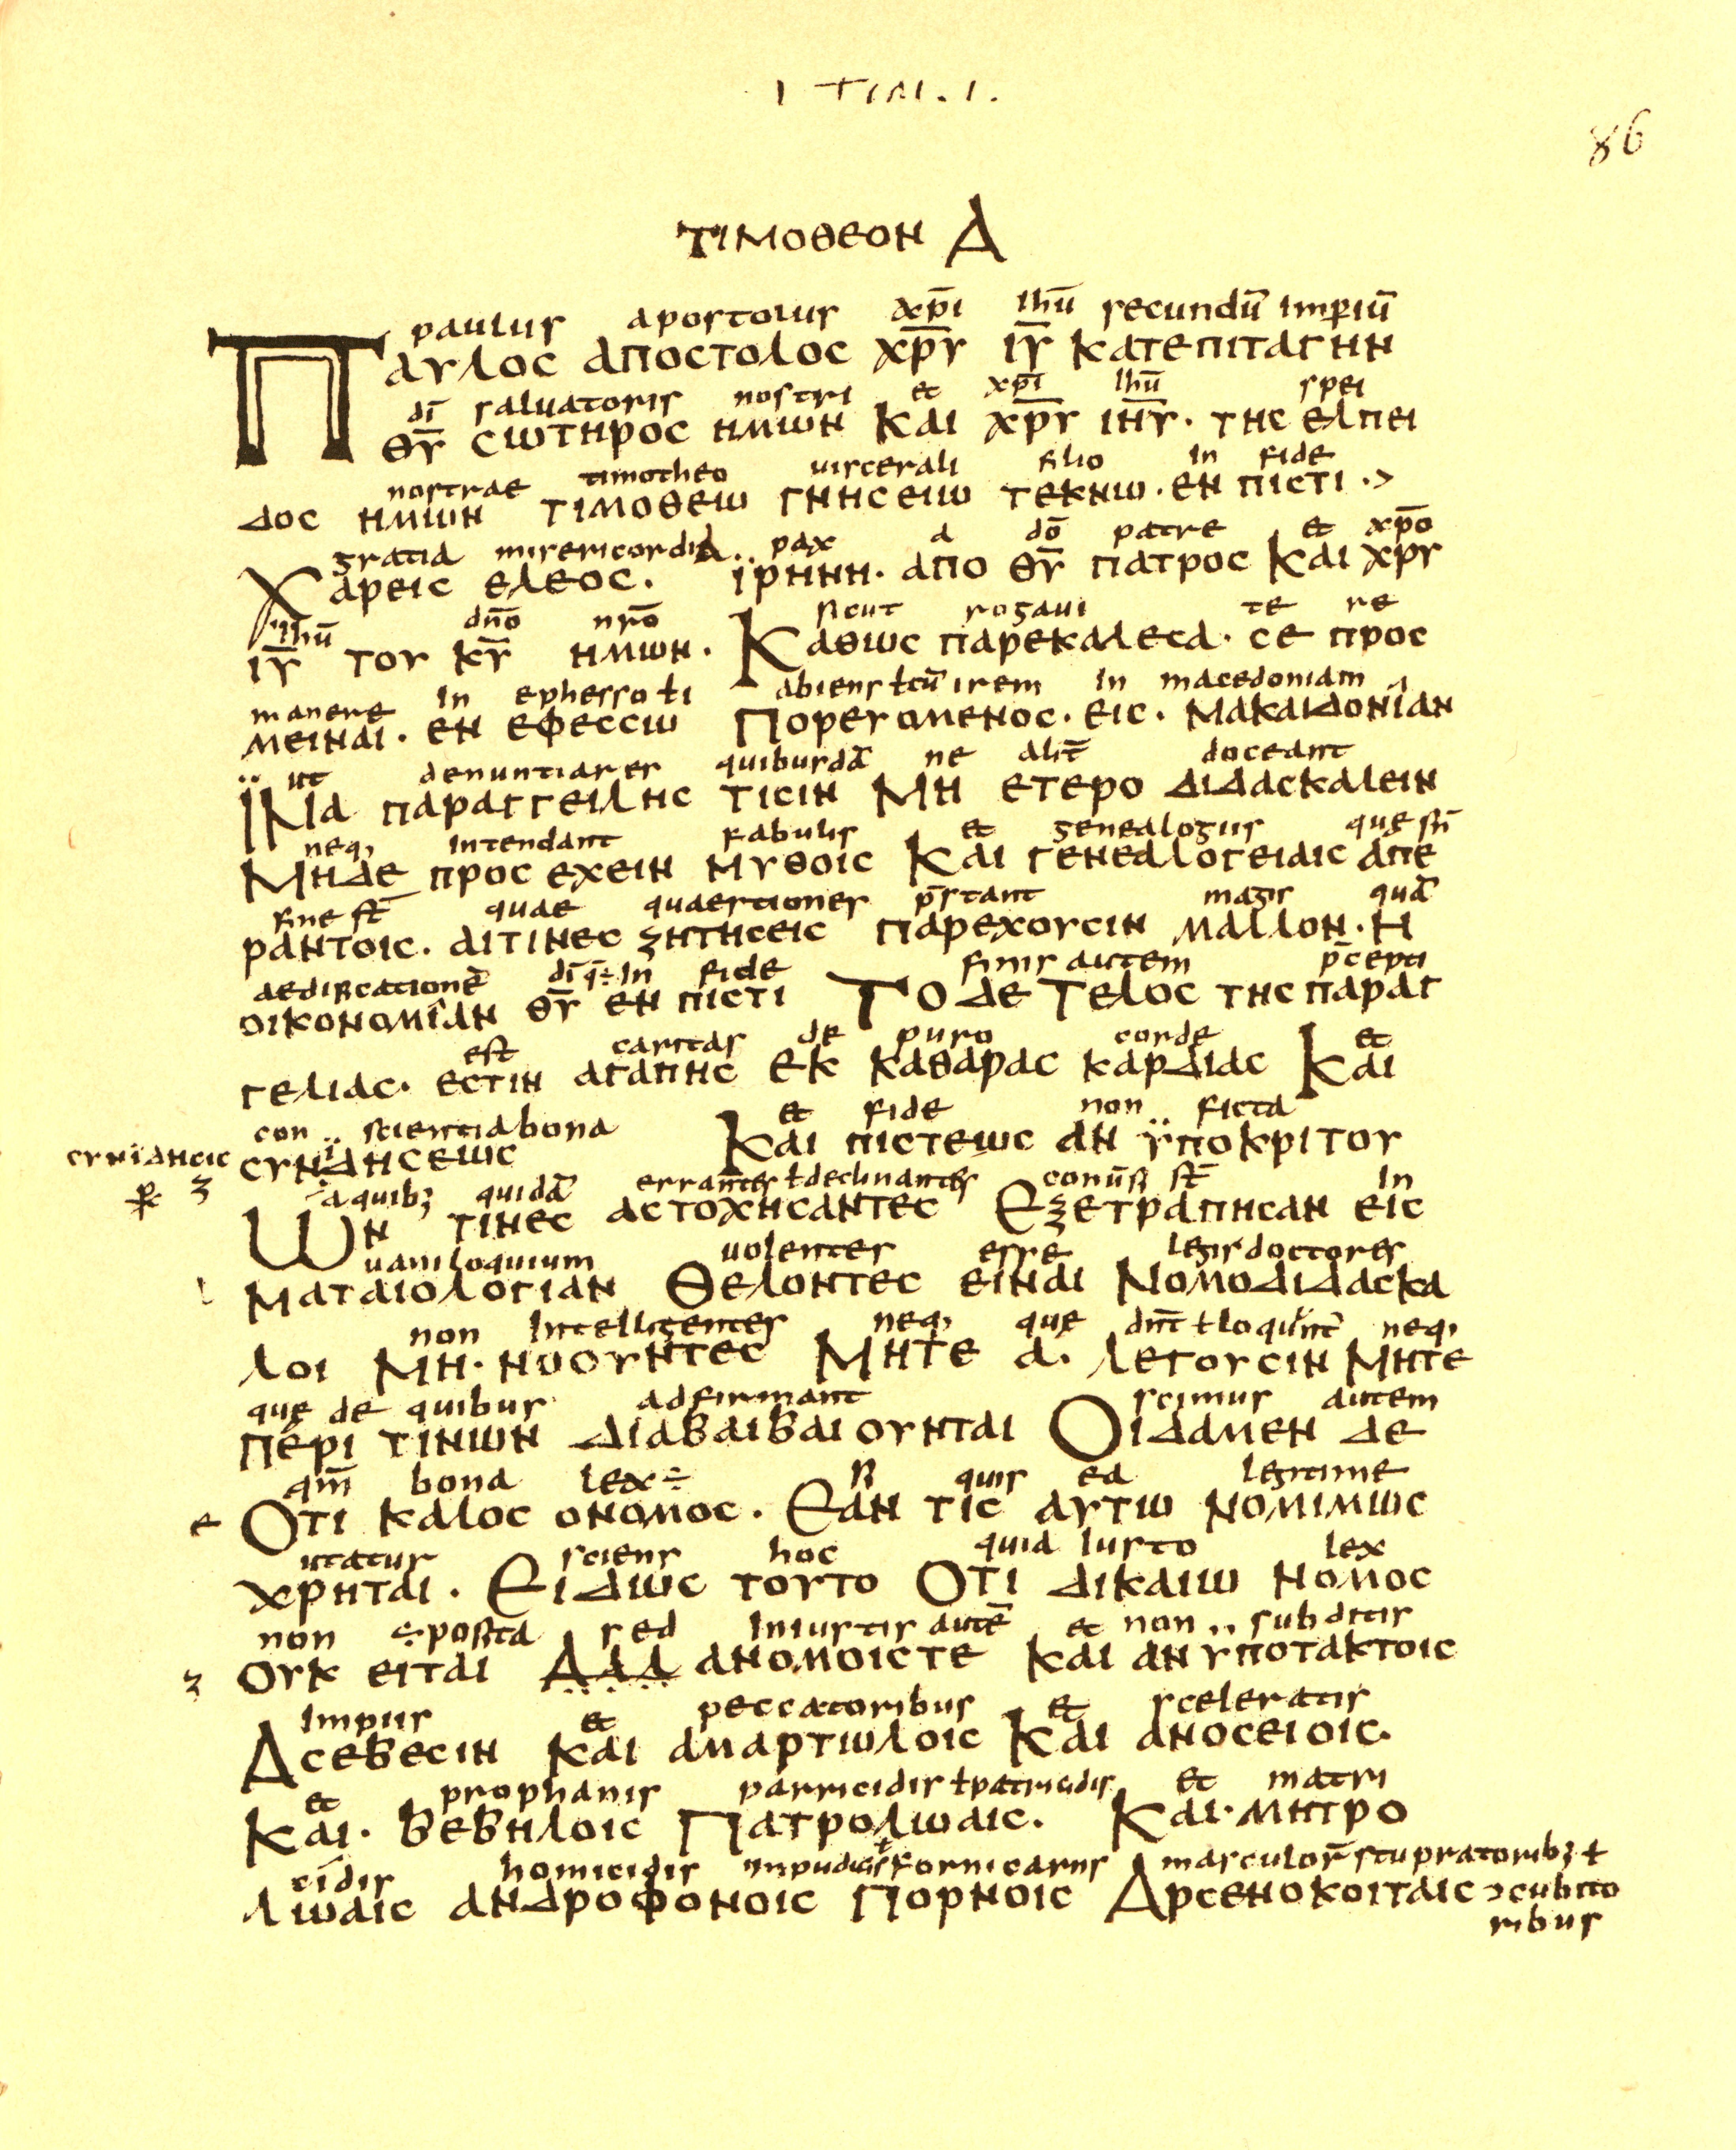 I TIM. I.
86
ΤΙΜΟΘΕΟΝ Α
paulus apostolus xp̄i ihū secundū imp̄iū
Παυλος αποστολος χ̅ρ̅υ̅ ι̅υ̅ κατεπιταγην
dī saluatoris nostri et xp̄i ihū spei
θ̅υ̅ σωτηρος ημων και χ̅ρ̅υ̅ ι̅η̅υ̅· της ελπει
nostrae timotheo uiscerali filio in fide
δος ημων τιμοθεω γνησειω τεκνω· εν πιστι ·>
gratia misericordia pax a dō patre et xp̄o
Χαρεις ελεος. ϊρηνη· απο θ̅υ̅ πατρος και χρυ
ihū dn̄o nr̄o sicut rogaui te re
ι̅υ̅ του κ̅υ̅ ημων. Καθως παρεκαλεσα· σε προς
manere in ephesso ti abiens ł cū irem in macedoniam
μειναι· εν εφεσσω Πορευομενος· εις· μακαιδονιαν
ut denuntiares quibusdā ne alit̄ doceant
ϊΝα παραγγειλης τισιν Μη ετερο διδασκαλειν
neq, intendant fabulis et genealogiis quę sn̄
Μηδε προς εχειν μυθοις Και γενεαλογειαις απε
fine st̄ quae quaestiones p̄stant magis quā
ραντοις. αιτινες ζητησεις παρεχουσιν μαλλον· η
aedificationē dī q̄ ÷ in fide finis autem p̄cepti
οικονομιαν θ̅υ̅ εν πιστι Το δε Τελος της παραγ
est caritas de puro corde et
γελιας· εστιν αγαπης εκ καθαρας καρδιας Και
con scientia bona et fide non ficta
συνειδησεως Και πιστεως αν ϋποκριτου
a quib; quidā errantes ł declinantes conūsi st̄ in
Ων τινες αστοχησαντες Εξετραπησαν εις
uaniloquium uolentes esse legis doctores
ματαιολογιαν Θελοντες ειναι Νομοδιδασκα
non intelligentes neq, quę dn̄t ł loqunt neq,
λοι Μη· νοουντες Μητε α· λεγουσιν Μητε
quę de quibus adfirmant scimus autem
περι τινων διαβαιβαιουνται Οιδαμεν δε
qm̄ bona lex ÷ si quis ea legitime
Οτι καλος ονομος. Εαν τις αυτω νομιμως
utatur sciens hoc quia iusto lex
χρηται. Ειδως τουτο Οτι δικαιω νομος
non ÷ posita sed iniustis autē et non subditis
ουκ ειται Αλλ ανομοιστε και αν υποτακτοις
impiis et peccatoribus et sceleratis
Ασεβεσιν και αμαρτωλοις Και ανοσειοις.
et prophanis parricidis ł patricidis et matri
Και· βεβηλοις Πατρολωαις. Και· μητρο
cidis homicidis impudicis ł fornicariis masculor̄ stupratorib; ł
λωαις ανδροφονοις Πορνοις Αρσενοκοιταις ɔcubito
ribus